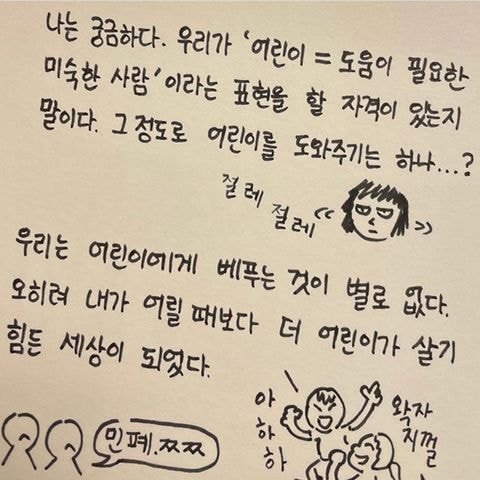 나는 궁금하다. 우리가 '어린이 = 도움이 필요한
미숙한 사람'이라는 표현을 할 자격이 있는지
말이다. 그 정도로 어린이를 도와주기는 하나...?
절레
절레
우리는 어린이에게 베푸는 것이 별로 없다.
오히려 내가 어릴 때보다 더 어린이가 살기
힘든 세상이 되었다.
아
하
하
왁자
지껄
민폐.쯔쯔